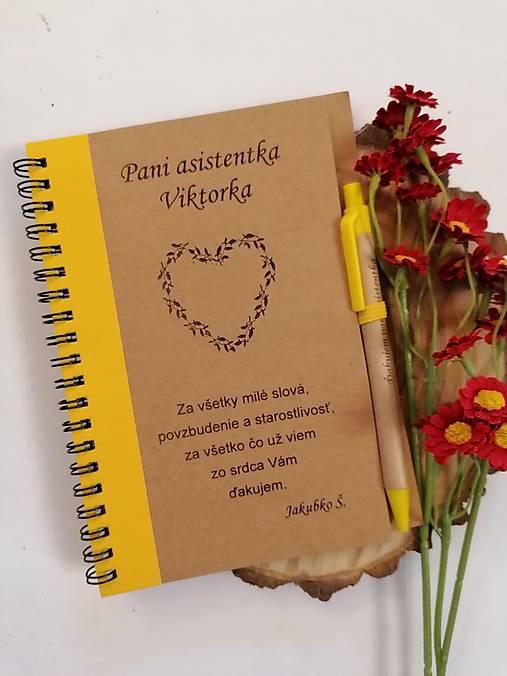 Pani asistentka
Viktorka
Za všetky milé slová,
povzbudenie a starostlivosť,
za všetko čo už viem
zo srdca Vám
ďakujem.
Jakubko Š.
Ďakujem pani asistentka